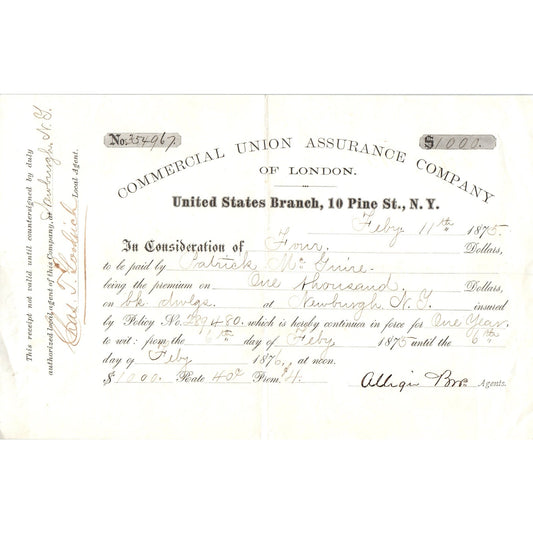 No. 354967
$1000.
COMMERCIAL UNION ASSURANCE COMPANY
OF LONDON.
United States Branch, 10 Pine St., N. Y.
Feby 11th 1875.
In Consideration of Four Dollars,
to be paid by Patrick McGuire.
being the premium on One thousand Dollars
on bk dwlgs. at Newburgh N. Y. insured
by Policy No. 289480. which is hereby continued in force for One Year.
to wit: from the 6th day of Feby 1875 until the 6th
day of Feby 1876, at noon.
$1000. Rate 40c Prem. $4.
Agents.
This receipt not valid until countersigned by duly
authorized local agent of this Company, at Newburgh. N. Y.
Chas. T. Goodrich Local Agent.